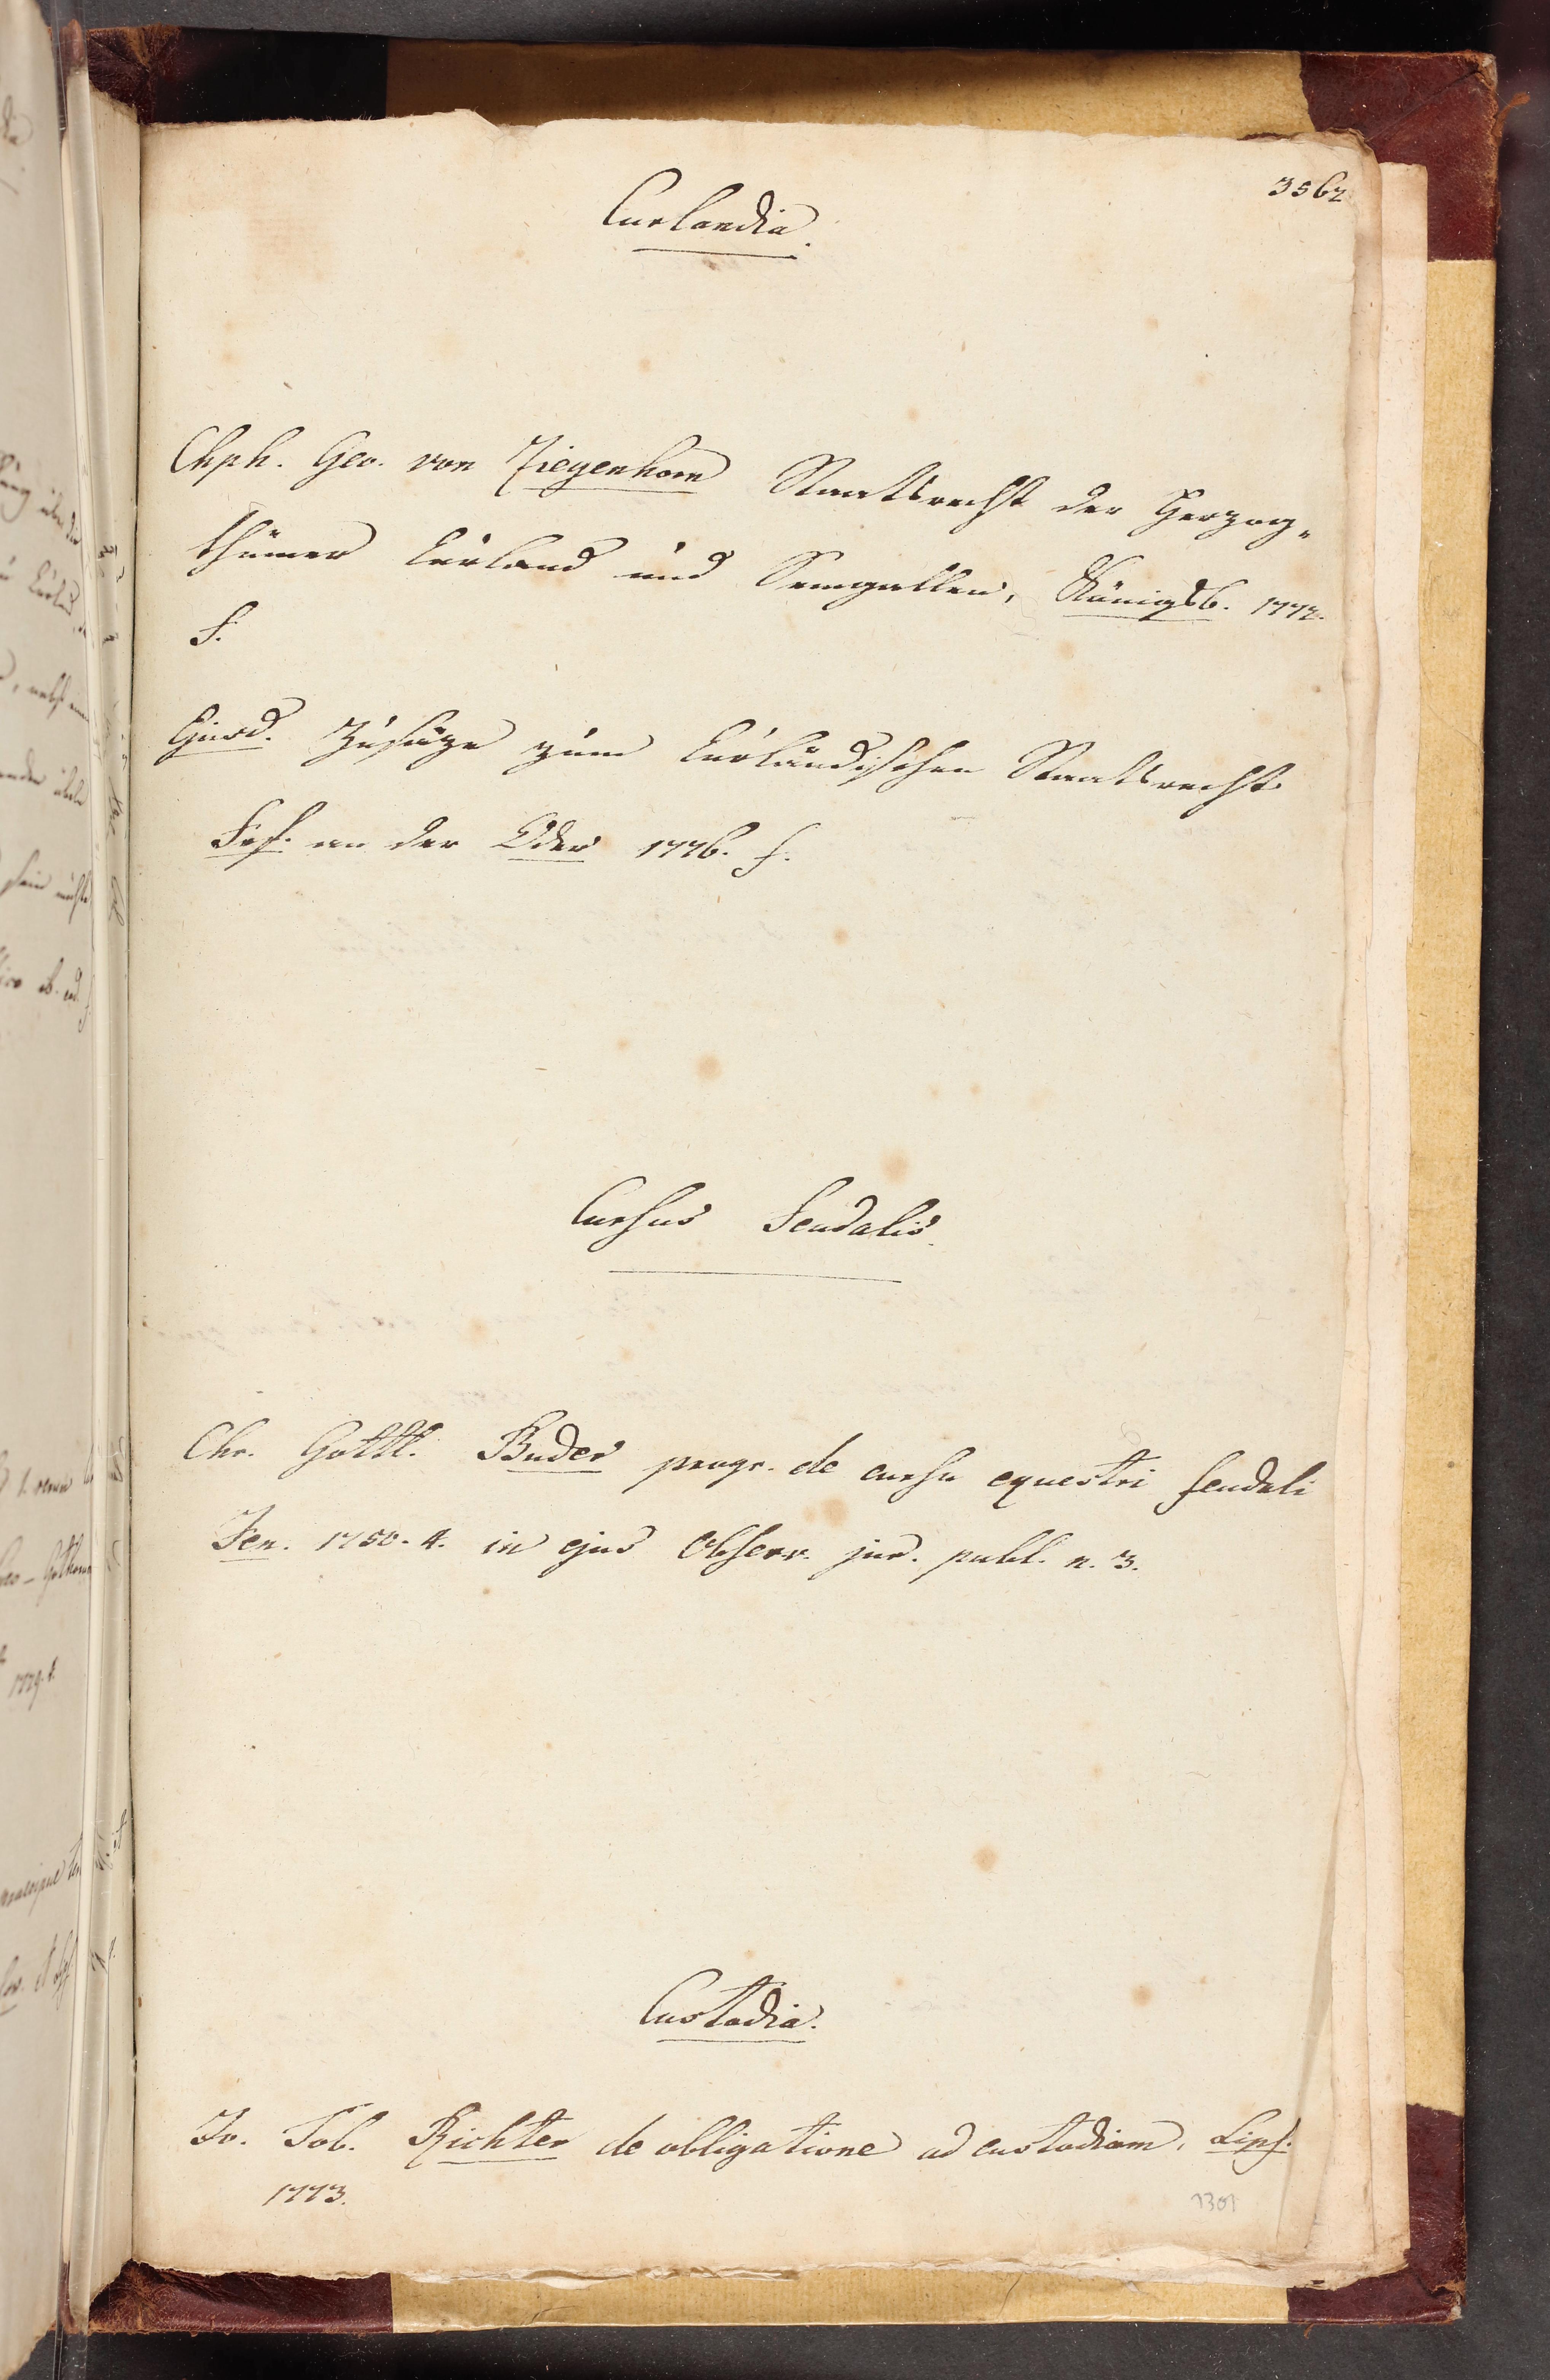 3562
Curlandia.
Chph. Geo. von Ziegenhorn Staatsrecht der Herzog„
thümer Curland und Semgallen, Königsb. 1772.
f.
Eiusd. Zusäze zum Curländischen Staatsrecht
Frf. an der Oder 1776. f.
Cursus Feudalis.
Chr. Gottl. Buder progr. de cursu equestri feudali
Jen. 1750. 4. in ejus Observ. jur. publ. n. 3.
Custodia.
Jo. Tob. Richter de obligatione ad custodiam, Lips.
1773.
1301